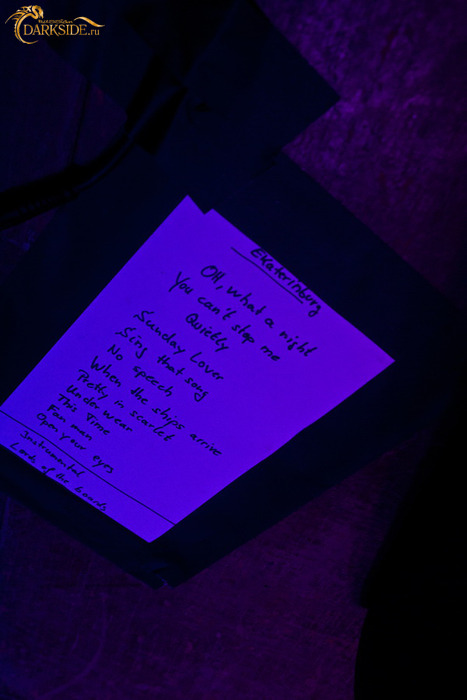 DARKSIDE.ru
Ekaterinburg
Oh, what a night
You can't stop me
Quietly
Sunday Lover
Sing that song
No speech
When the ships arrive
Pretty in scarlet
Underwear
This Time
Fan man
Open Your eyes
Instrumental
Lords of the boards